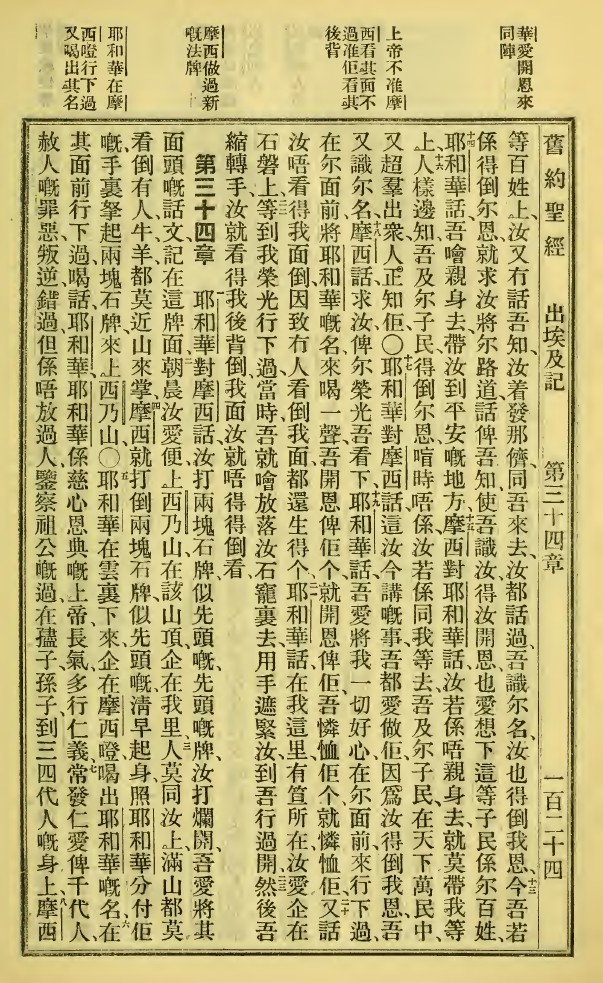 華愛開恩來
同陣
上帝不准摩
西看其面不
過准佢看其
後背
摩西做過新
嘅法牌
耶和華在摩
西嶝行下過
又喝出其名
舊約聖經 出埃及記 第三十四章 一百二十四
等百姓上、汝又冇話吾知、汝着發那儕同吾來去、汝都話過、吾識尔名、汝也得倒我恩、十三今吾若
係得倒尔恩、就求汝將尔路道話俾吾知、使吾識汝、得汝開恩、也愛想下這等子民係尔百姓、
十四耶和華話、吾噲親身去、帶汝到平安嘅地方、十五摩西對耶和華話、汝若係唔親身去、就莫帶我等
上、十六人樣邊知吾及尔子民得倒尔恩、唁時唔係汝若係同我等去、吾及尔子民、在天下萬民中、
又超羣出衆、人正知佢〇十七耶和華對摩西話、這汝今講嘅事、吾都愛做佢、因爲汝得倒我恩、吾
又識尔名、十八摩西話、求汝俾尔榮光吾看下、十九耶和華話、吾愛將我一切好心、在尔面前來行下過、
在尔面前將耶和華嘅名來喝一聲、吾開恩俾佢个、就開恩俾佢、吾憐恤佢个、就憐恤佢、二十又話
汝唔看得我面倒、因致冇人看倒我面都還生得个、二一耶和華話、在我這里有笪所在、汝愛企在
石磐上、二二等到我榮光行下過當時、吾就噲放落汝石窿裏去、用手遮緊汝、到吾行過開、二三然後吾
縮轉手、汝就看得我後背倒、我面汝就唔得得倒看、
第三十四章 一耶和華對摩西話、汝打兩塊石牌似先頭嘅、先頭嘅牌、汝打爛開、吾愛將其
面頭嘅話文、記在這牌面、二朝晨汝愛便、上西乃山、在該山頂企在我里、三人莫同汝上、滿山都莫
看倒有人、牛羊都莫近山來掌、四摩西就打倒兩塊石牌似先頭嘅、清早起身、照耶和華分付佢
嘅、手裏拏起兩塊石牌、來上西乃山〇五耶和華在雲裏下來、企在摩西嶝、喝出耶和華嘅名、六在
其面前行下過、喝話、耶和華、耶和華、係慈心恩典嘅上帝、長氣、多行仁義、七常發仁愛俾千代人、
赦人嘅罪惡、叛逆、錯過、但係唔放過人、鑒察祖公嘅過、在孻子孫子、到三四代人嘅身上、八摩西